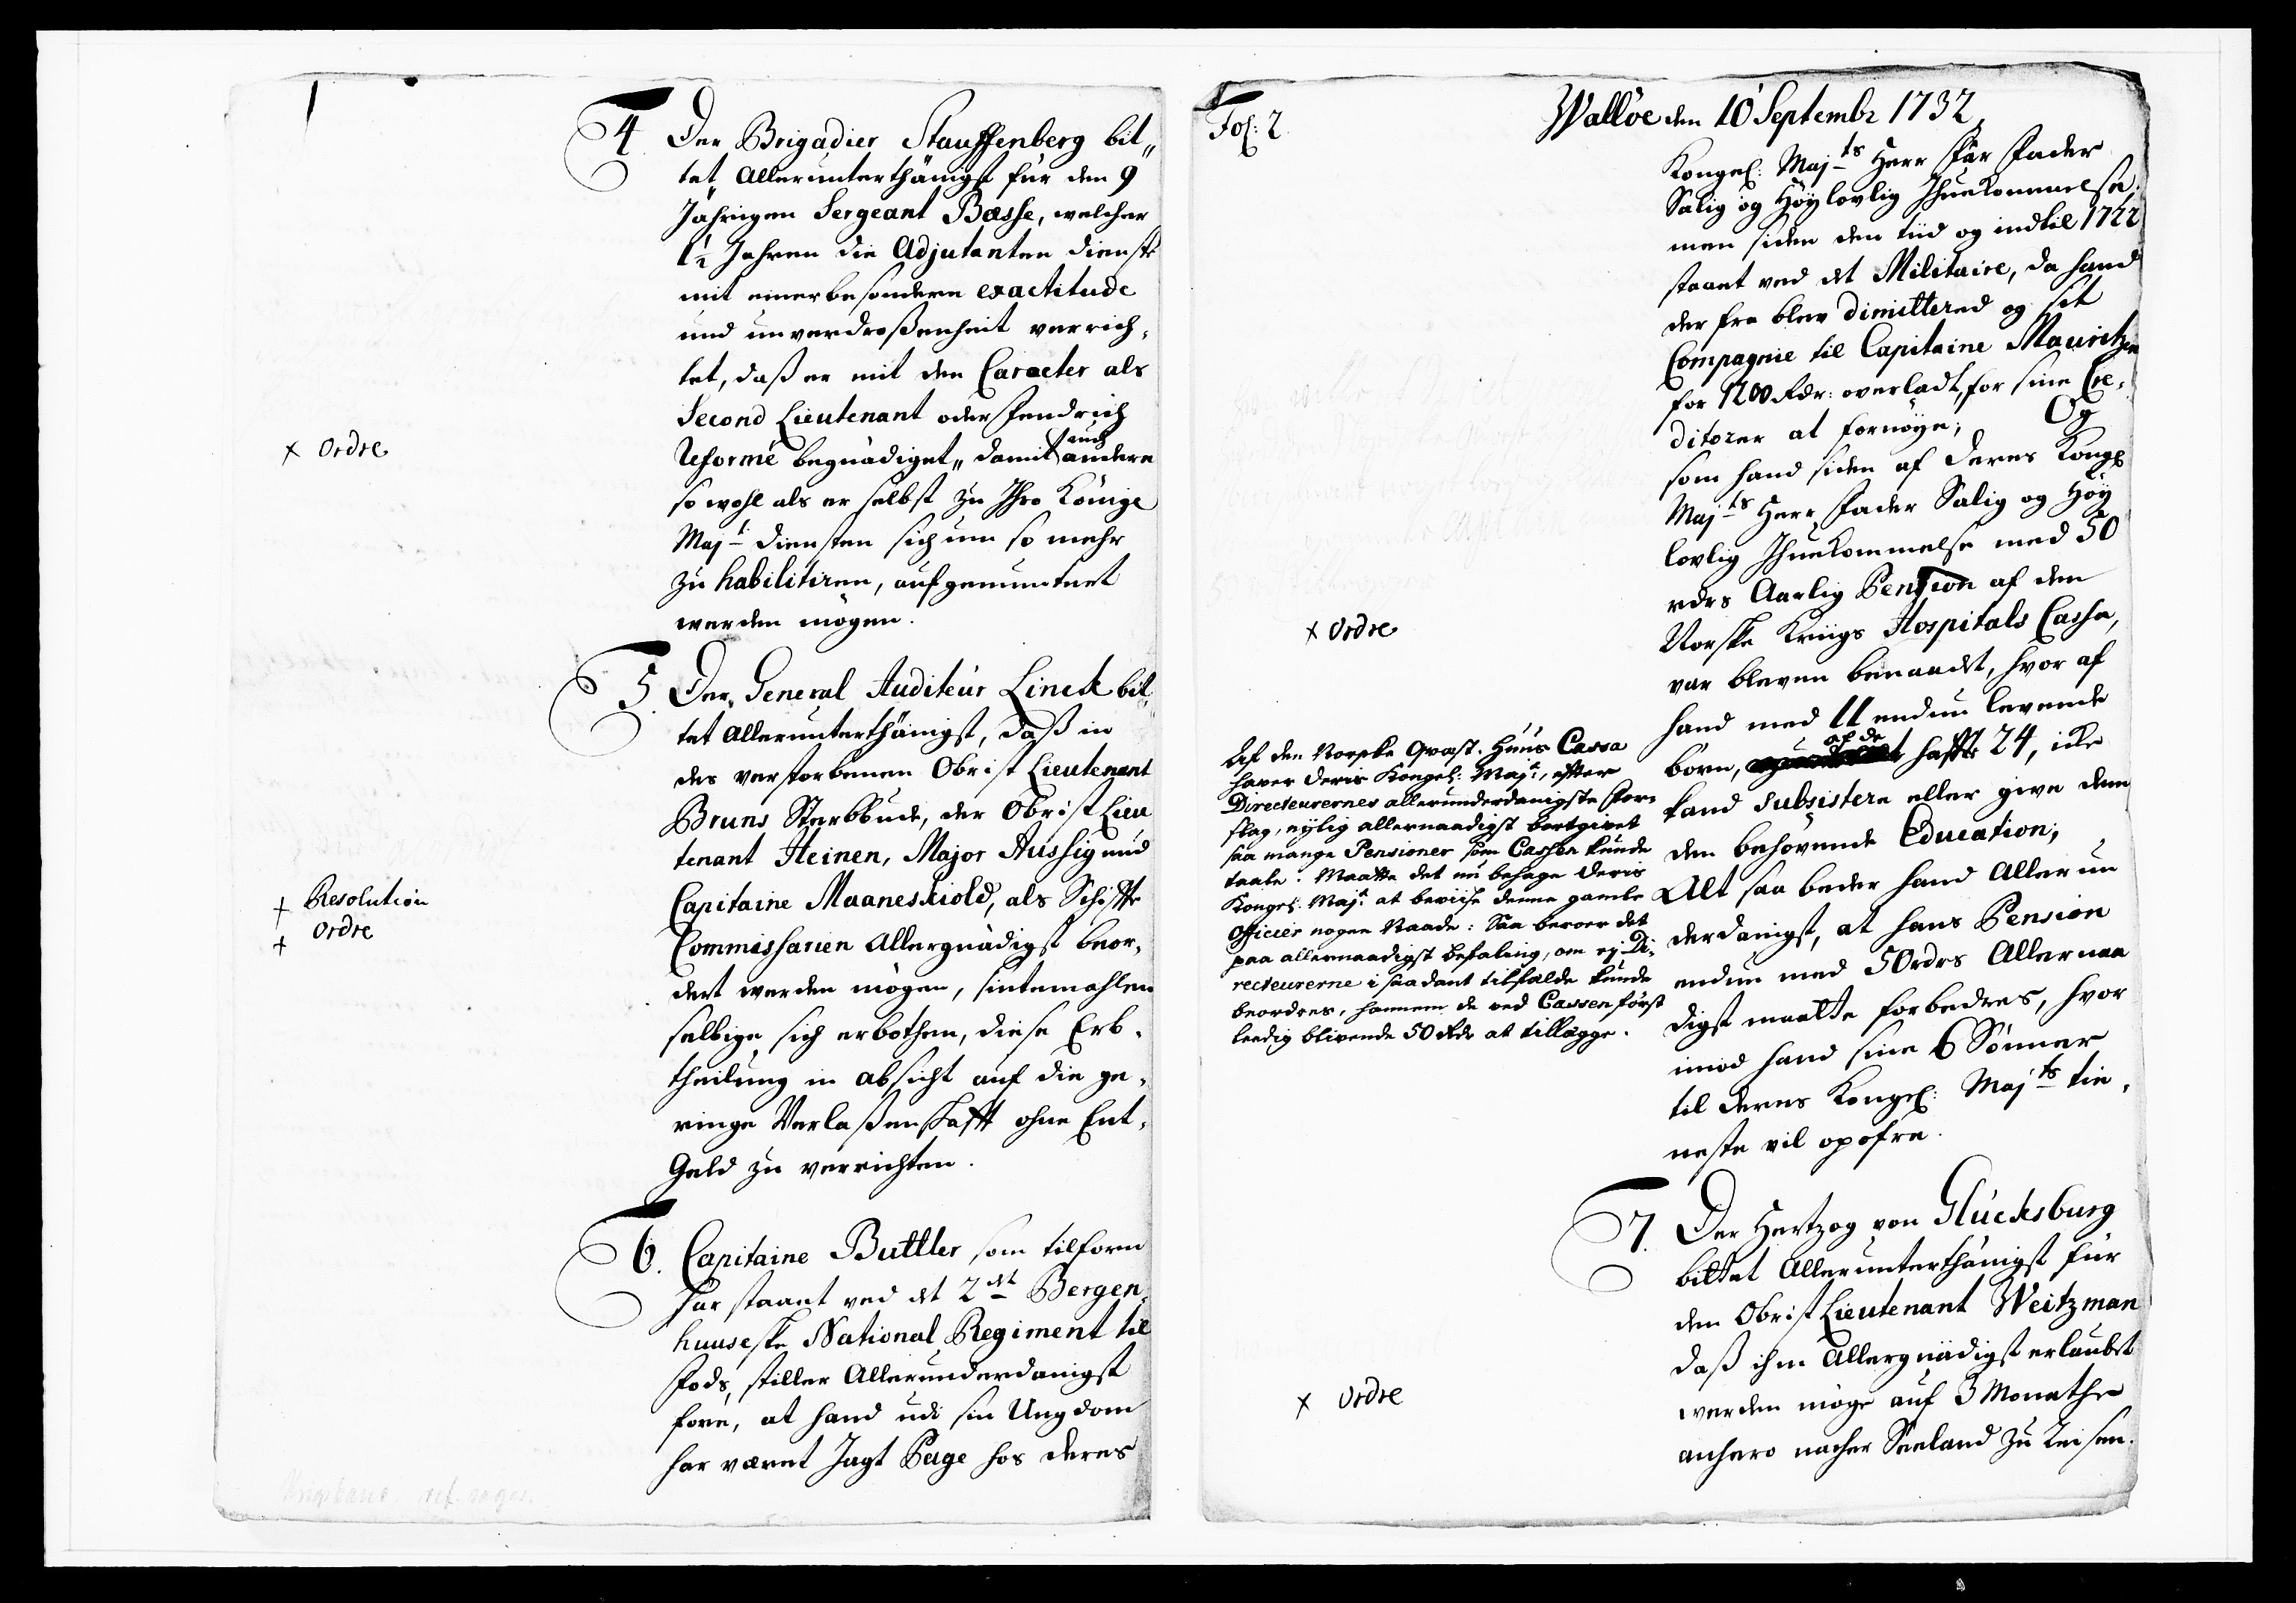 4 Der Brigadier Stauffenberg bit„
tet, Allerunterthänigst für den 9
Jahrigen Sergeant Basse, welcher
1½ Jahren die Adjutanten dienste
mit einer besondern exactitude
und unverdroßenheit verrich„
tet, daß er mit den Caracter als
Second Lieutenant oder Fendrich
x Ordre
Reformé begnädiget, damit auch andere
so wohl als er selbst zu Ihro Königl
Majt: diensten sich um so mehr
zu habilitiren, aufgemuntert
werden mögen.
5. Der General Auditeur Linck bit„
tet Allerunterthänigst, daß in
des verstorbenen Obrist Lieutenant
Bruns Sterbbude, der Obrist Lieu
tenant Heinen, Major Aussig und
† Resolution
Capitaine Maaneskiold, als Schiffte
† Ordre
Commissarien Allergnädigst beor„
dert werden mögen, sintemahlen
selbige sich erbothen, diese Erb„
theilung in absicht auf die ge„
ringe Verlaßenschafft ohne Ent„
Geld zu verrichten.
6. Capitaine Buttler som tilforn
har staaet ved det 2det Bergen„
huusiske National Regiment til
Fods, stiller Allerunderdanigst
fore, at hand udi sin Ungdom
har været Jagt Page hos deres
Fol: 2.
Walløe den 10 Septembr 1732
Kongel: Majts Herr Far Fader
Salig og Høylovlig Ihuekommelse
men siden den tiid og indtil 1722
staaet ved det Militaire, da hand
der fra blev dimittered og sit
Compagnie til Capitaine Mauritzen
for 1200 Rdr: overladt, for sine Cre„
ditorer at fornøye; Og
som hand siden af deres Kongl
Majts Herr Fader Salig og Høy
lovlig Ihuekommelse med 50
rdrs Aarlig Pension af den
x Ordre
Norske Kriigs Hospitals Cassa,
var bleven benaadet, hvor af
hand med 11 endnu levende
børn, af de hafte 24, icke
kand subsistere eller give dem
den behøvende Education;
Alt saa beder hand Allerun
derdanigst, at hans Pension
endnu med 50rdrs Allernaa
digst maatte forbedres, hvor
imod hand sine 6 Sønner
til deres Kongel: Majts tie„
neste vil opofre.
Af den Norske Qvæst. Huus Cassa
haver deris Kongel: Majt, efter
Directeurernes allerunderdanigste For
slag, nylig allernaadigst bortgivet
saa mange Pensioner som Cassen kunde
taale: Maatte det nu behage deris
Kongel: Majt at beviise denne gamle
Officier nogen Naade: Saa beroer det
paa allernaadigst befaling, om ej Di„
recteurerne i saadant tilfælde kunde
beordres, hannem de ved Cassen først
leedig blivende 50 Rdr at tillægge.
7. Der Hertzog von Glücksburg
bittet Allerunterthänigst für
den Obrist Lieutenant Weitzman
daß ihm Allergnädigst erlaubt
x Ordre
werden möge auf 3 Monathe
anhero nacher Seeland zu Reisen.